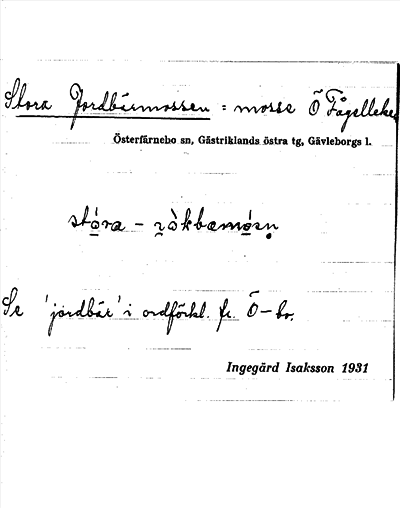 Stora Jordbärmossen = mosse Ö Fågelleken
Österfärnebo sn, Gästriklands östra tg, Gävleborgs l.
stóra -
Se 'jordbär' i ordförkl. fr. Ö-bo.
Ingegärd Isaksson 1931